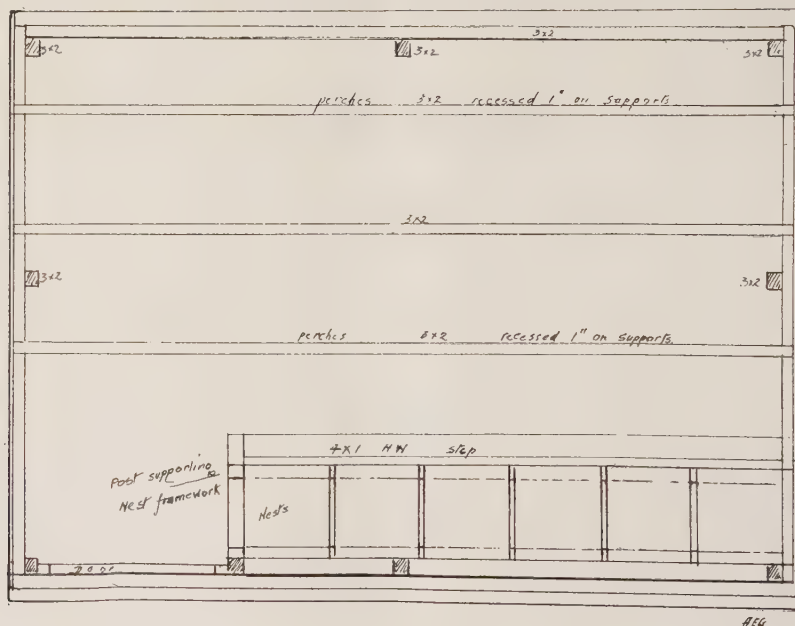 3x2
3x2
3x2
3x2
perches 3x2 recessed 1" on supports
3x2
3x2
3x2
perches 3x2 recessed 1" on supports.
4x1 HW step
Post supporting
Nest framework
Nests
Door
AEG